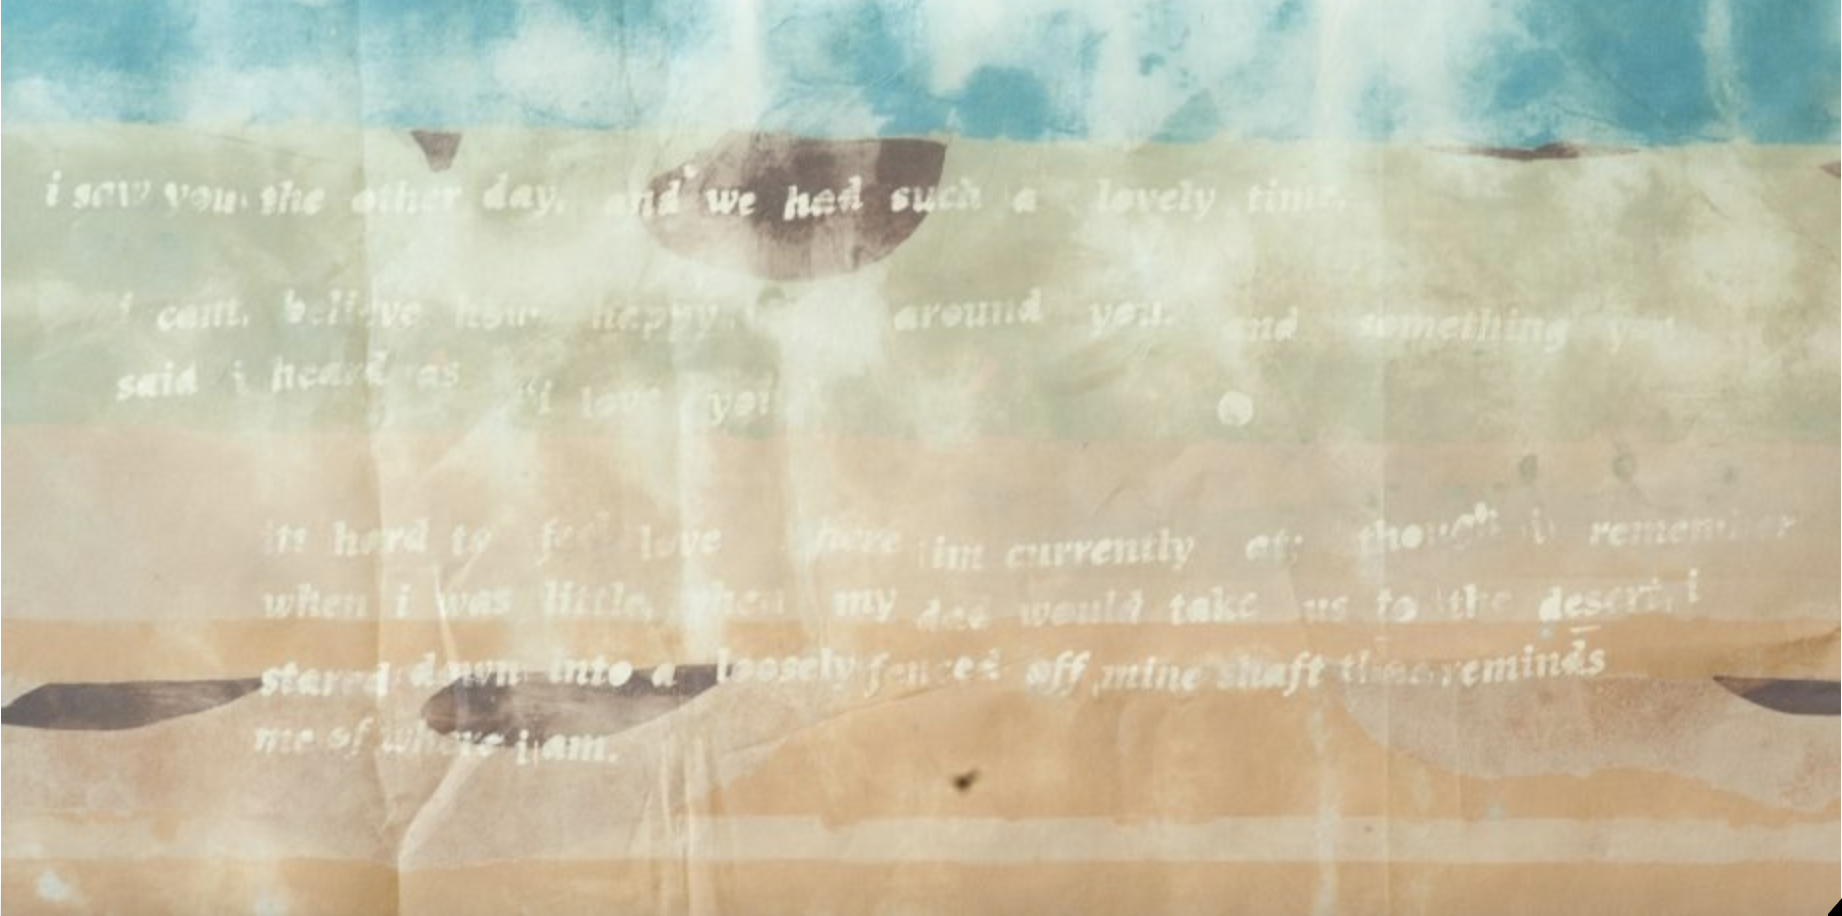 i saw you the other day, and we had such a lovely time.
i cant believe how happy around you. and something you
said i heard as "i love you"
its hard to feel love where im currently at; though i remember
when i was little, when my dad would take us to the desert, i
stared down into a loosely fenced off mine shaft that reminds
me of where i am.